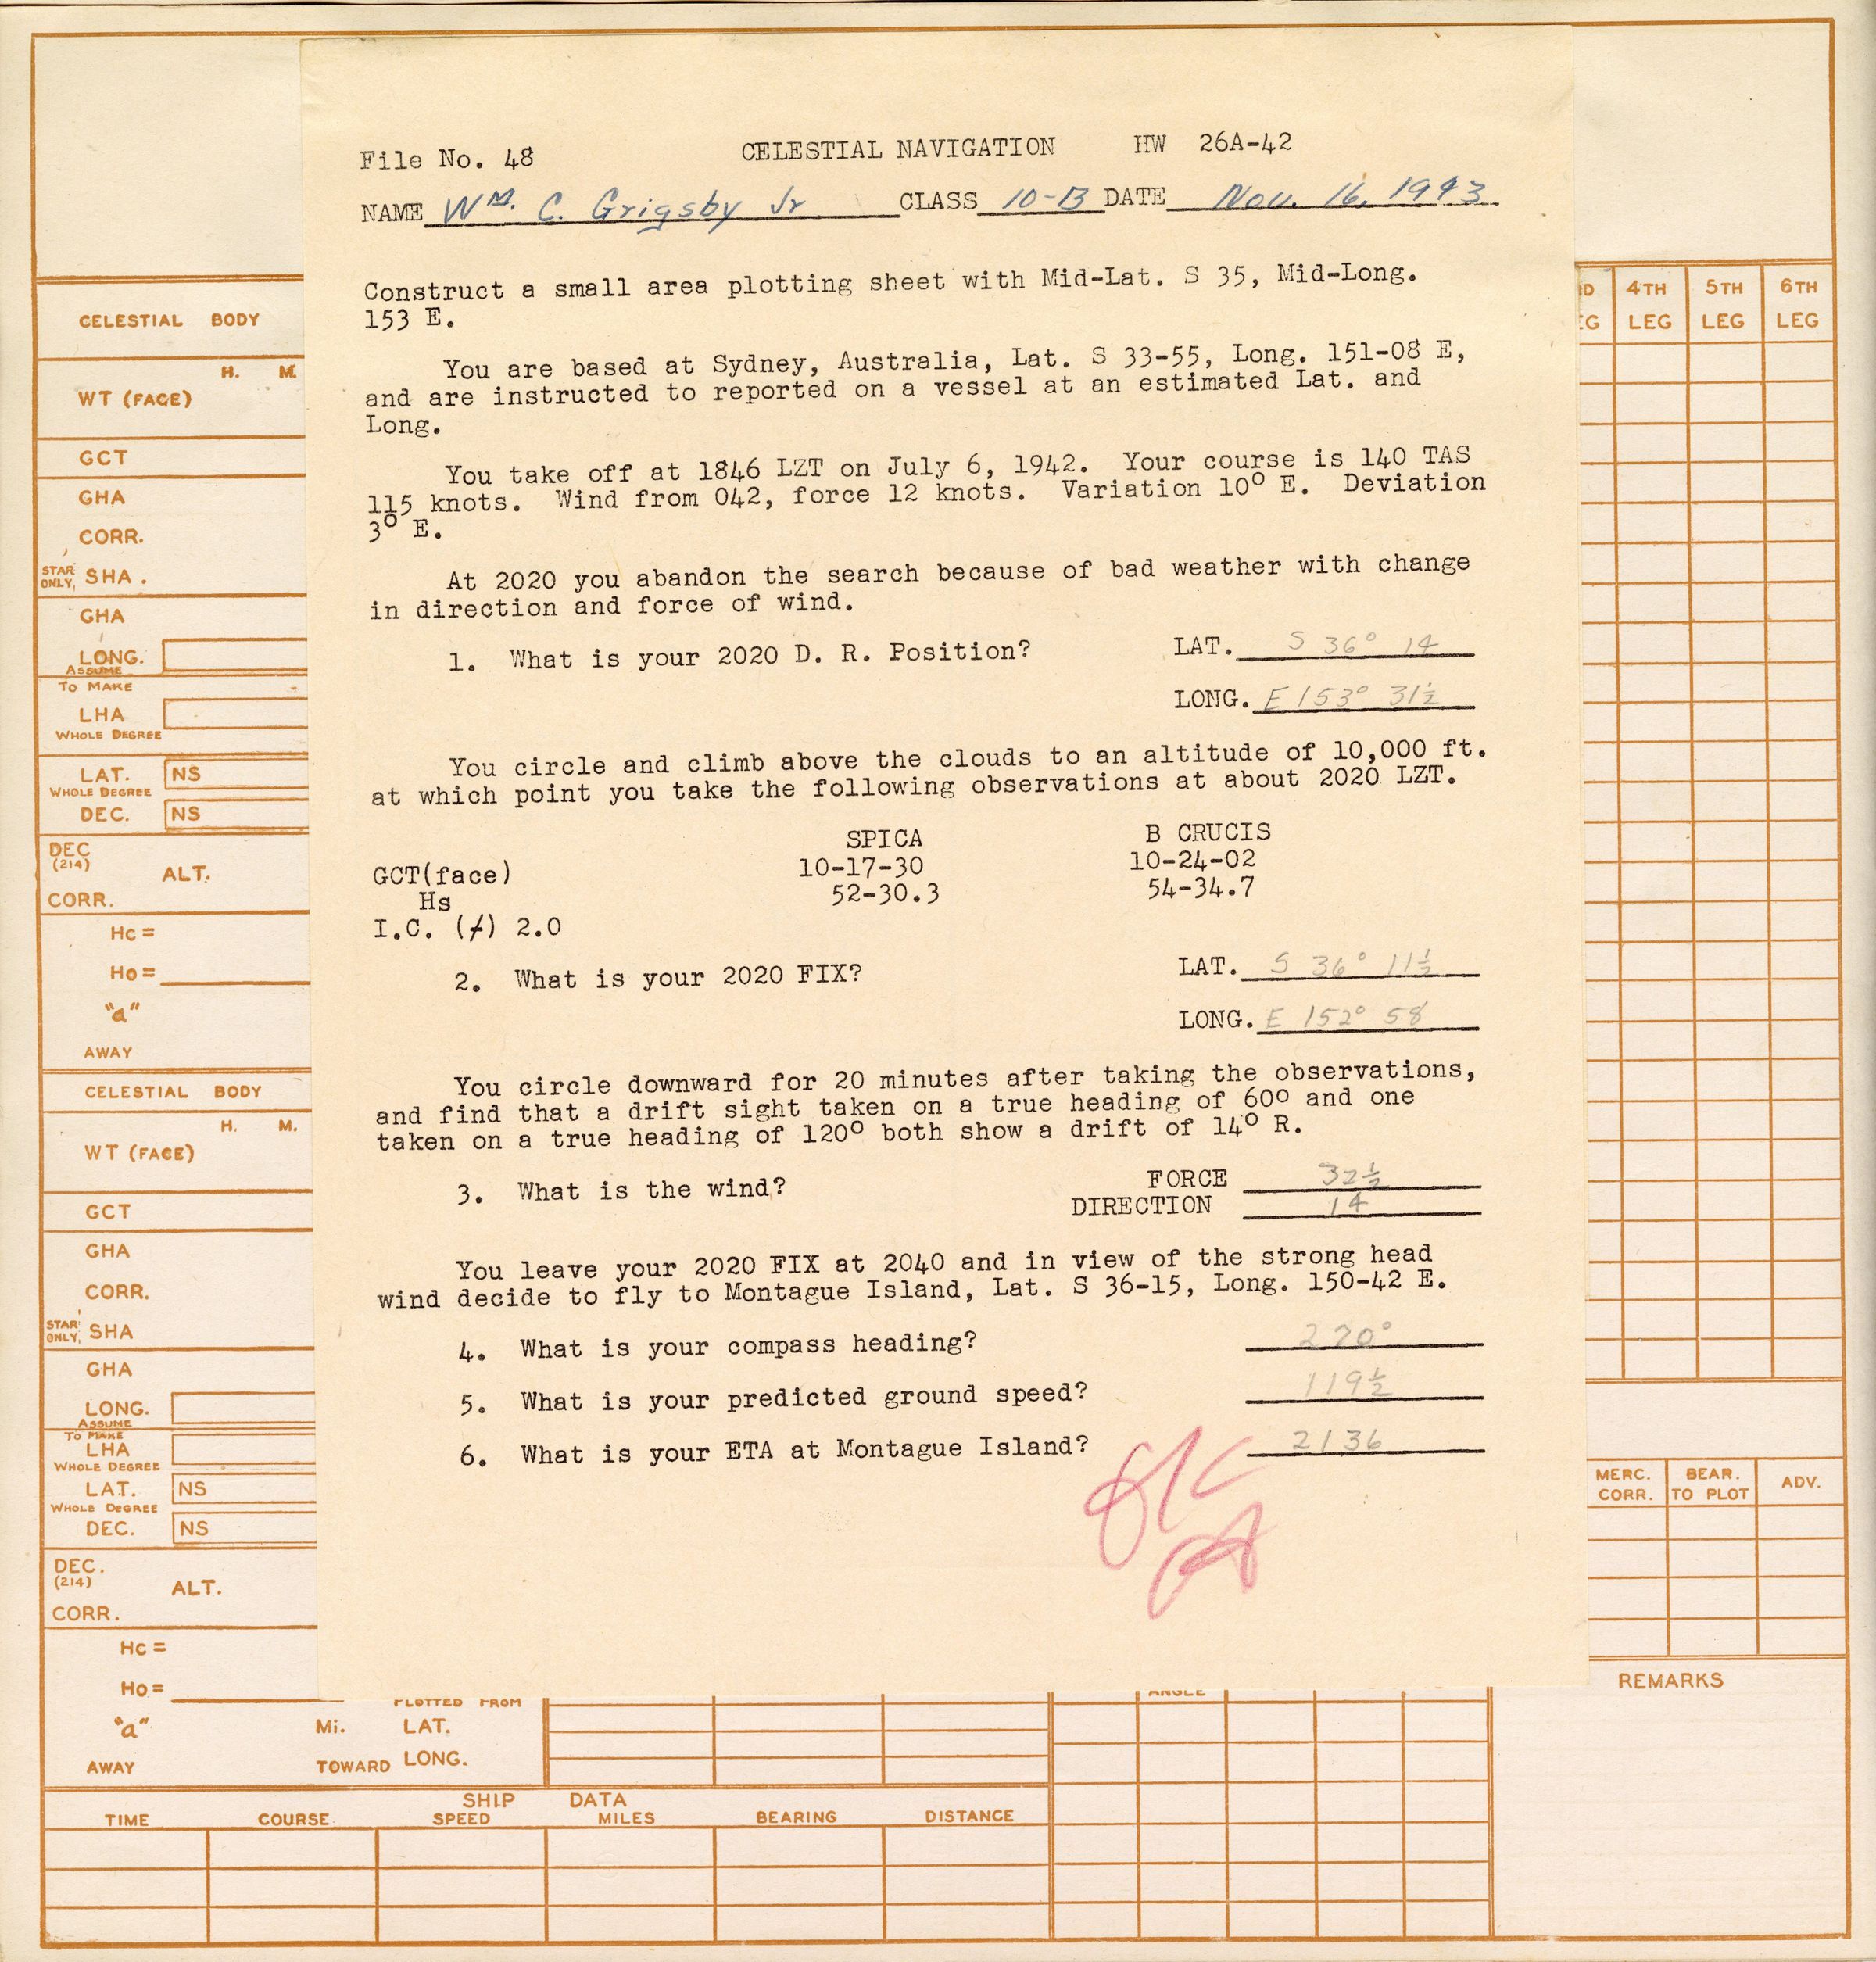 File No. 48 CELESTIAL NAVIGATION HW 26A-42
NAME Wm. C. Grigsby Jr CLASS 10-B DATE Nov. 16, 1943
Construct a small area plotting sheet with Mid-Lat. S 35, Mid-Long.
153 E.
You are based at Sydney, Australia, Lat. S 33-55, Long. 151-08 E,
and are instructed to reported on a vessel at an estimated Lat. and
Long.
You take off at 1846 LZT on July 6, 1942. Your course is 140 TAS
115 knots. Wind from 042, force 12 knots. Variation 10° E. Deviation
3° E.
At 2020 you abandon the search because of bad weather with change
in direction and force of wind.
1. What is your 2020 D. R. Position? LAT. S 36° 14
LONG. E 153° 31½
You circle and climb above the clouds to an altitude of 10,000 ft.
at which point you take the following observations at about 2020 LZT.
SPICA B CRUCIS
GCT(face) 10-17-30 10-24-02
Hs 52-30.3 54-34.7
I.C. (/) 2.0
2. What is your 2020 FIX? LAT. S 36° 11½
LONG. E 152° 58
You circle downward for 20 minutes after taking the observations,
and find that a drift sight taken on a true heading of 60° and one
taken on a true heading of 120° both show a drift of 14° R.
3. What is the wind? FORCE 32½
DIRECTION 14
You leave your 2020 FIX at 2040 and in view of the strong head
wind decide to fly to Montague Island, Lat. S 36-15, Long. 150-42 E.
4. What is your compass heading? 270°
5. What is your predicted ground speed? 119½
6. What is your ETA at Montague Island? 2136
CELESTIAL BODY
H. M.
WT (FACE)
GCT
GHA
CORR.
STAR ONLY, SHA.
GHA
LONG.
ASSUME
TO MAKE
LHA
WHOLE DEGREE
LAT. NS
WHOLE DEGREE
DEC. NS
DEC
(214) ALT.
CORR.
Hc =
Ho =
"a"
AWAY
CELESTIAL BODY
H. M.
WT (FACE)
GCT
GHA
CORR.
STAR ONLY, SHA
GHA
LONG.
ASSUME
TO MAKE
LHA
WHOLE DEGREE
LAT. NS
WHOLE DEGREE
DEC. NS
DEC.
(214) ALT.
CORR.
Hc =
Ho =
PLOTTED FROM
"a" Mi. LAT.
AWAY TOWARD LONG.
SHIP DATA
TIME COURSE SPEED MILES BEARING DISTANCE
4TH 5TH 6TH
LEG LEG LEG
MERC. BEAR. ADV.
CORR. TO PLOT
ANGLE
REMARKS